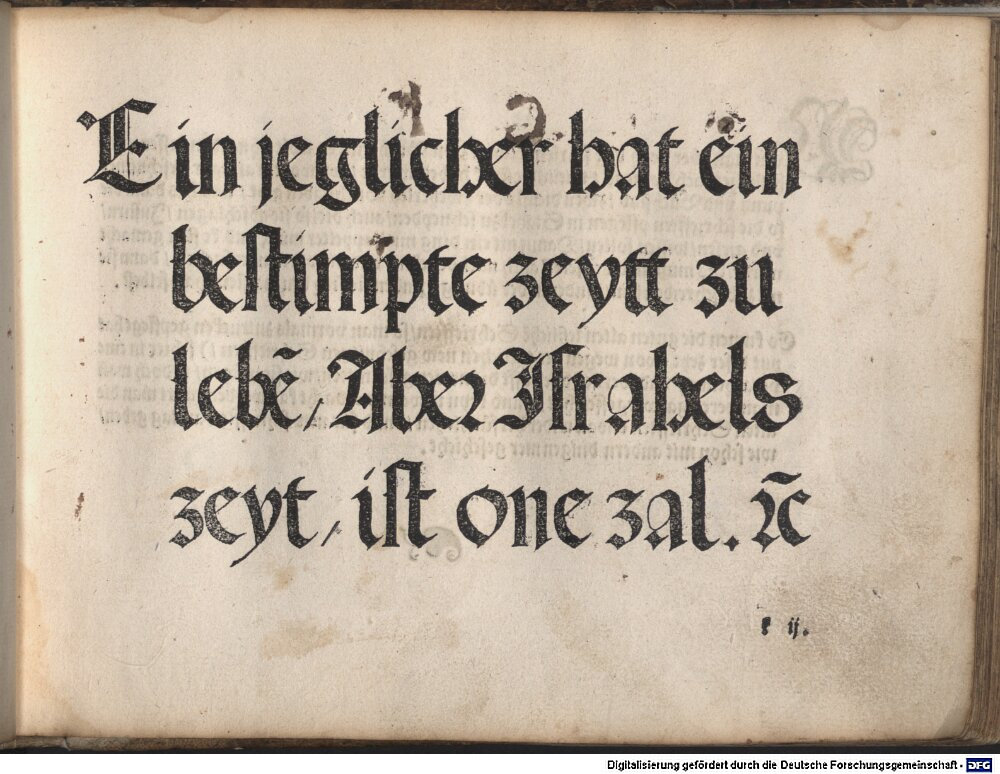 Ein jeglicher hat ein
bestimpte zeytt zu
lebē / Aber Israhels
zeyt / ist one zal. ꝛc̄
ij.
Digitalisierung gefördert durch die Deutsche Forschungsgemeinschaft - DFG